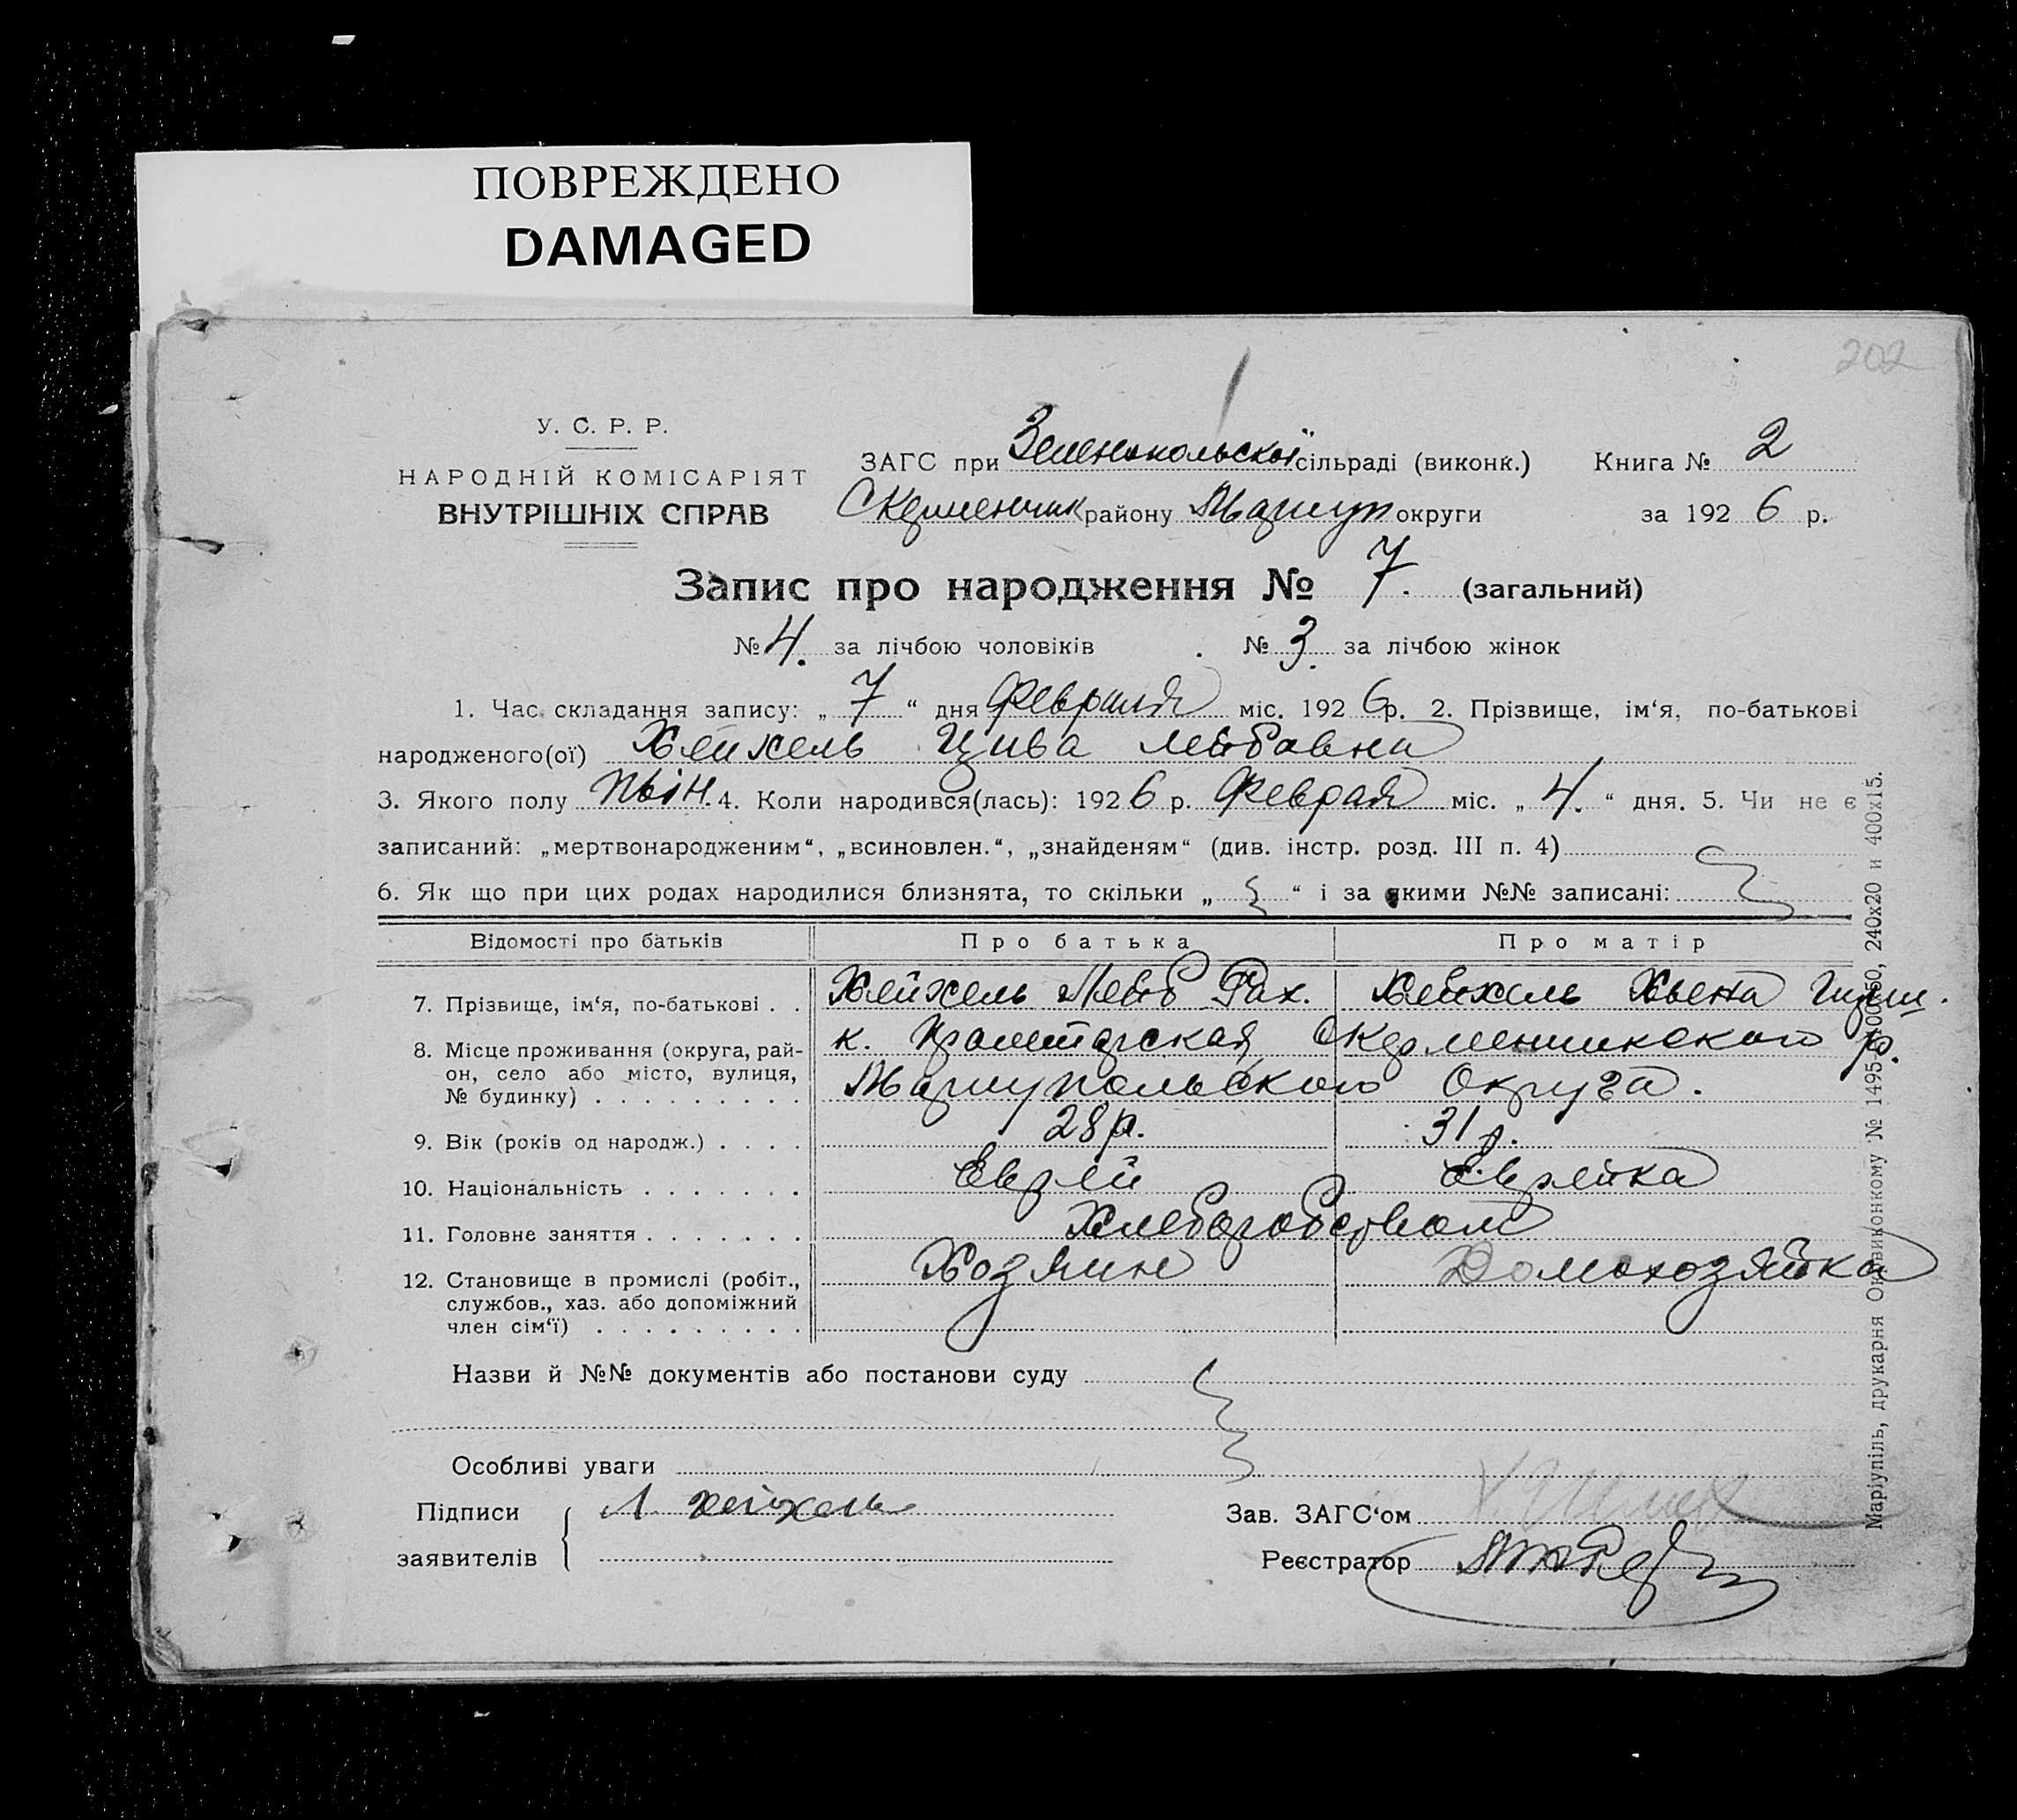 ПОВРЕЖДЕНО
DAMAGED
202
У. С. Р. Р.
НАРОДНІЙ КОМІСАРІЯТ
ВНУТРІШНІХ СПРАВ
ЗАГС при Зеленопольскої сільраді (виконк.) Книга № 2
С Керменчик району Мариуп округи за 1926 р.
Запис про народження № 7. (загальний)
№ 4. за лічбою чоловіків № 3. за лічбою жінок
1. Час складання запису: „ 7 “ дня Февраля міс. 1926 р. 2. Прізвище, ім‘я, по-батькові
народженого(ої) Хейхель Цива Лейбовна
3. Якого полу 4. Коли народився(лась): 1926 р. Февраля міс. „ 4. “ дня. 5. Чи не є
записаний: „мертвонародженим“, „всиновлен.“, „знайденям“ (див. інстр. розд. III п. 4)
6. Як що при цих родах народилися близнята, то скільки „ “ і за якими №№ записані:
Відомості про батьків Про батька Про матір
7. Прізвище, ім‘я, по-батькові . . Хейхель Лейб Рах. Хейхель Хьена
8. Місце проживання (округа, рай- к. Пролетарская, Скерменчикского р.
он, село або місто, вулиця, Мариупольского Округа.
№ будинку) . . . . . . . . .
9. Вік (років од народж.) . . . . 28 р. 31 р.
10. Національність . . . . . . . Еврей Еврейка
11. Головне заняття . . . . . . . Хлеборобством
12. Становище в промислі (робіт., Хозяин Домохозяйка
службов., хаз. або допоміжний
член сім‘ї) . . . . . . . . .
Назви й №№ документів або постанови суду
Особливі уваги
Підписи Л Хейхель Зав. ЗАГС‘ом
заявителів Реєстратор
Маріупіль, друкарня Окрвиконкому № 1495-100х50, 240х20 и 400х15.